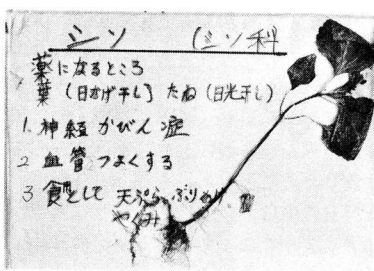 シソ (シソ科
薬になるところ
葉(日かげ干し) たね(日光干し)
1. 神経かびん症
2 血管つよくする
3 食用として 天ぷら ふりかけ
やくみ